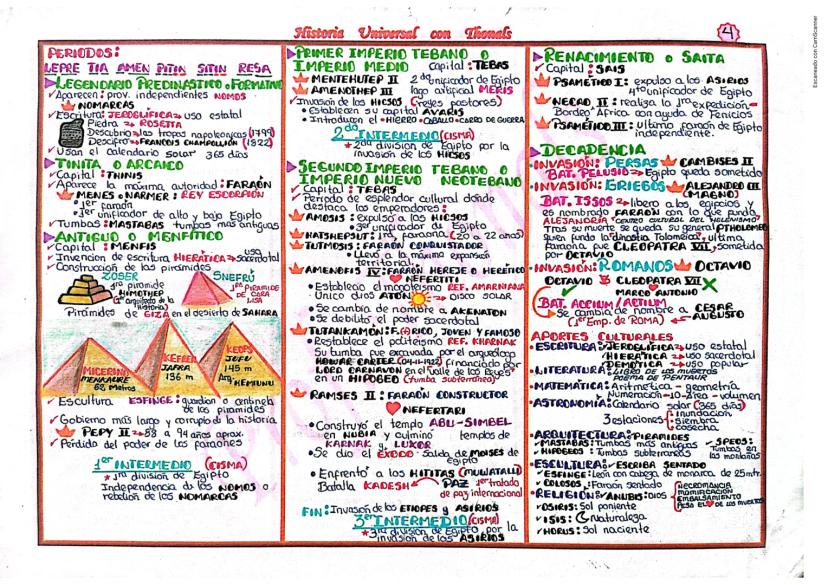 Historia Universal con Thonals
4
Escaneado con CamScanner
PERIODOS:
LEPRE TIA AMEN PITIN SITIN RESA
LEGENDARIO PREDINASTICO o FORMATIVO
Aparecen: prov. independientes NOMOS
NOMARCAS
Escritura: JEROGLIFICA → uso estatal
Piedra → ROSETTA
Descubrio → las tropas napoleonicas (1799)
Descifro → FRANCOIS CHAMPOLLION (1822)
Usan el calendario solar 365 dias
TINITA O ARCAICO
Capital: THINIS
Aparece la maxima autoridad: FARAÓN
MENES o NARMER: REY ESCORPIÓN
1er faraón
1er unificador de alto y bajo Egipto
Tumbas: MASTABAS tumbas mas antiguas
ANTIGUO O MENFITICO
Capital: MENFIS
Invencion de escritura HIERATICA → uso sacerdotal
Construccion de las piramides
ZOSER
1ra piramide
HIMOTHEP
(1er arquitecto de la historia)
SNEFRÚ
1ra PIRAMIDE DE CARA LISA
Piramides de GIZA en el desierto de SAHARA
MICERINO
MENKAURE
62 Metros
KEFREN
JAFRA
136 m
KEOPS
JUFU
145 m
Arq. HEMIUNU
Escultura ESFINGE: guardian o centinela de las piramides
Gobierno mas largo y corrupto de la historia
PEPY II → 88 a 94 años aprox.
Perdida del poder de los faraones
1er INTERMEDIO (CISMA)
*1ra division de Egipto
Independencia de los NOMOS o
rebelion de los NOMARCAS
PRIMER IMPERIO TEBANO O
IMPERIO MEDIO capital: TEBAS
MENTEHUTEP II 2do unificador de Egipto
AMENOTHEP III lago artificial MERIS
Invasion de los HICSOS (reyes pastores)
Establecen su capital AVARIS
Introducen el •HIERRO •CABALLO •CARRO DE GUERRA
2do INTERMEDIO (CISMA)
*2da division de Egipto por la
invasion de los HICSOS
SEGUNDO IMPERIO TEBANO O
IMPERIO NUEVO NEOTEBANO
Capital: TEBAS
Periodo de esplendor cultural donde
destaca los emperadores:
AMOSIS: expulso a los HICSOS
3er unificador de Egipto
HATSHEPSUT: 1ra faraona (20 a 22 años)
TUTMOSIS: FARAÓN CONQUISTADOR
Llevo a la maxima expansión
territorial
AMENOFIS IV: FARAÓN HEREJE O HERÉTICO
NEFERTITI
Establecio el monoteismo REF. AMARNIANA
Unico dios ATON → DISCO SOLAR
Se cambia de nombre a AKENATON
Se debilito el poder sacerdotal
TUTANKAMÓN: F.(A) RICO, JOVEN Y FAMOSO
Restablece el politeismo REF. KHARNAK
Su tumba fue excavada por el arqueologo
HOWAR CARTER (04-11-1922) financiado por
LORD CARNAVON en el "Valle de los Reyes"
en un HIPOGEO (tumba subterranea)
RAMSES II: FARAÓN CONSTRUCTOR
NEFERTARI
Construyó el templo ABU-SIMBEL
en NUBIA y culmino templos de
KARNAK y LUXOR
Se dio el EXODO: salida de MOISES de
Egipto
Enfrento a los HITITAS (MUWATALLI)
Batalla KADESH PAZ 1er tratado
de paz internacional
FIN: Invasion de los ETIOPES y ASIRIOS
3er INTERMEDIO (CISMA)
*3ra division de Egipto por la
invasion de los ASIRIOS
RENACIMIENTO O SAITA
Capital: SAIS
PSAMETICO I: expulso a los ASIRIOS
4to unificador de Egipto
NECAO II: realiza la 1ra expedición
Bordeo Africa con ayuda de Fenicios
PSAMETICO III: ultimo faraón de Egipto
independiente.
DECADENCIA
INVASIÓN: PERSAS CAMBISES II
BAT. PELUSIO → Egipto queda sometido
INVASIÓN: GRIEGOS ALEJANDRO III
(MAGNO)
BAT. ISSOS → libero a los egipcios y
es nombrado FARAÓN con lo que funda
ALEJANDRIA "CENTRO CULTURAL DEL HELENISMO"
Tras su muerte se queda su general PTHOLOMEO
quien funda la "dinastia Tolomeica", ultima
faraona fue CLEOPATRA VII, sometida
por OCTAVIO
INVASIÓN: ROMANOS OCTAVIO
OCTAVIO CLEOPATRA VII
MARCO ANTONIO
BAT. ACCIUM / ACTIUM
Se cambia de nombre a CESAR
(1er Emp. de ROMA) AUGUSTO
APORTES CULTURALES
ESCRITURA: JEROGLÍFICA → uso estatal
HIERATICA → uso sacerdotal
DEMOTICA → uso popular
LITERATURA: LIBRO DE LOS MUERTOS
POEMA DE PENTAUR
MATEMATICA: Aritmetica - geometria
Numeracion -10- area - volumen
ASTRONOMIA: Calendario solar (365 dias)
3 estaciones: Inundacion
Siembra
cosecha
ARQUITECTURA: PIRAMIDES
MASTABAS: Tumbas mas antiguas
HIPOGEOS: Tumbas subterraneas
SPEOS:
Tumbas en las montañas
ESCULTURA: ESCRIBA SENTADO
ESFINGE: León con cabeza de monarca de 25mtr.
COLOSOS: Faraón sentado
RELIGION: ANUBIS: DIOS
NECROMANCIA
MOMIFICACIÓN
EMBALSAMIENTO
PESA EL DE LOS MUERTOS
OSIRIS: Sol poniente
ISIS: Naturaleza
HORUS: Sol naciente